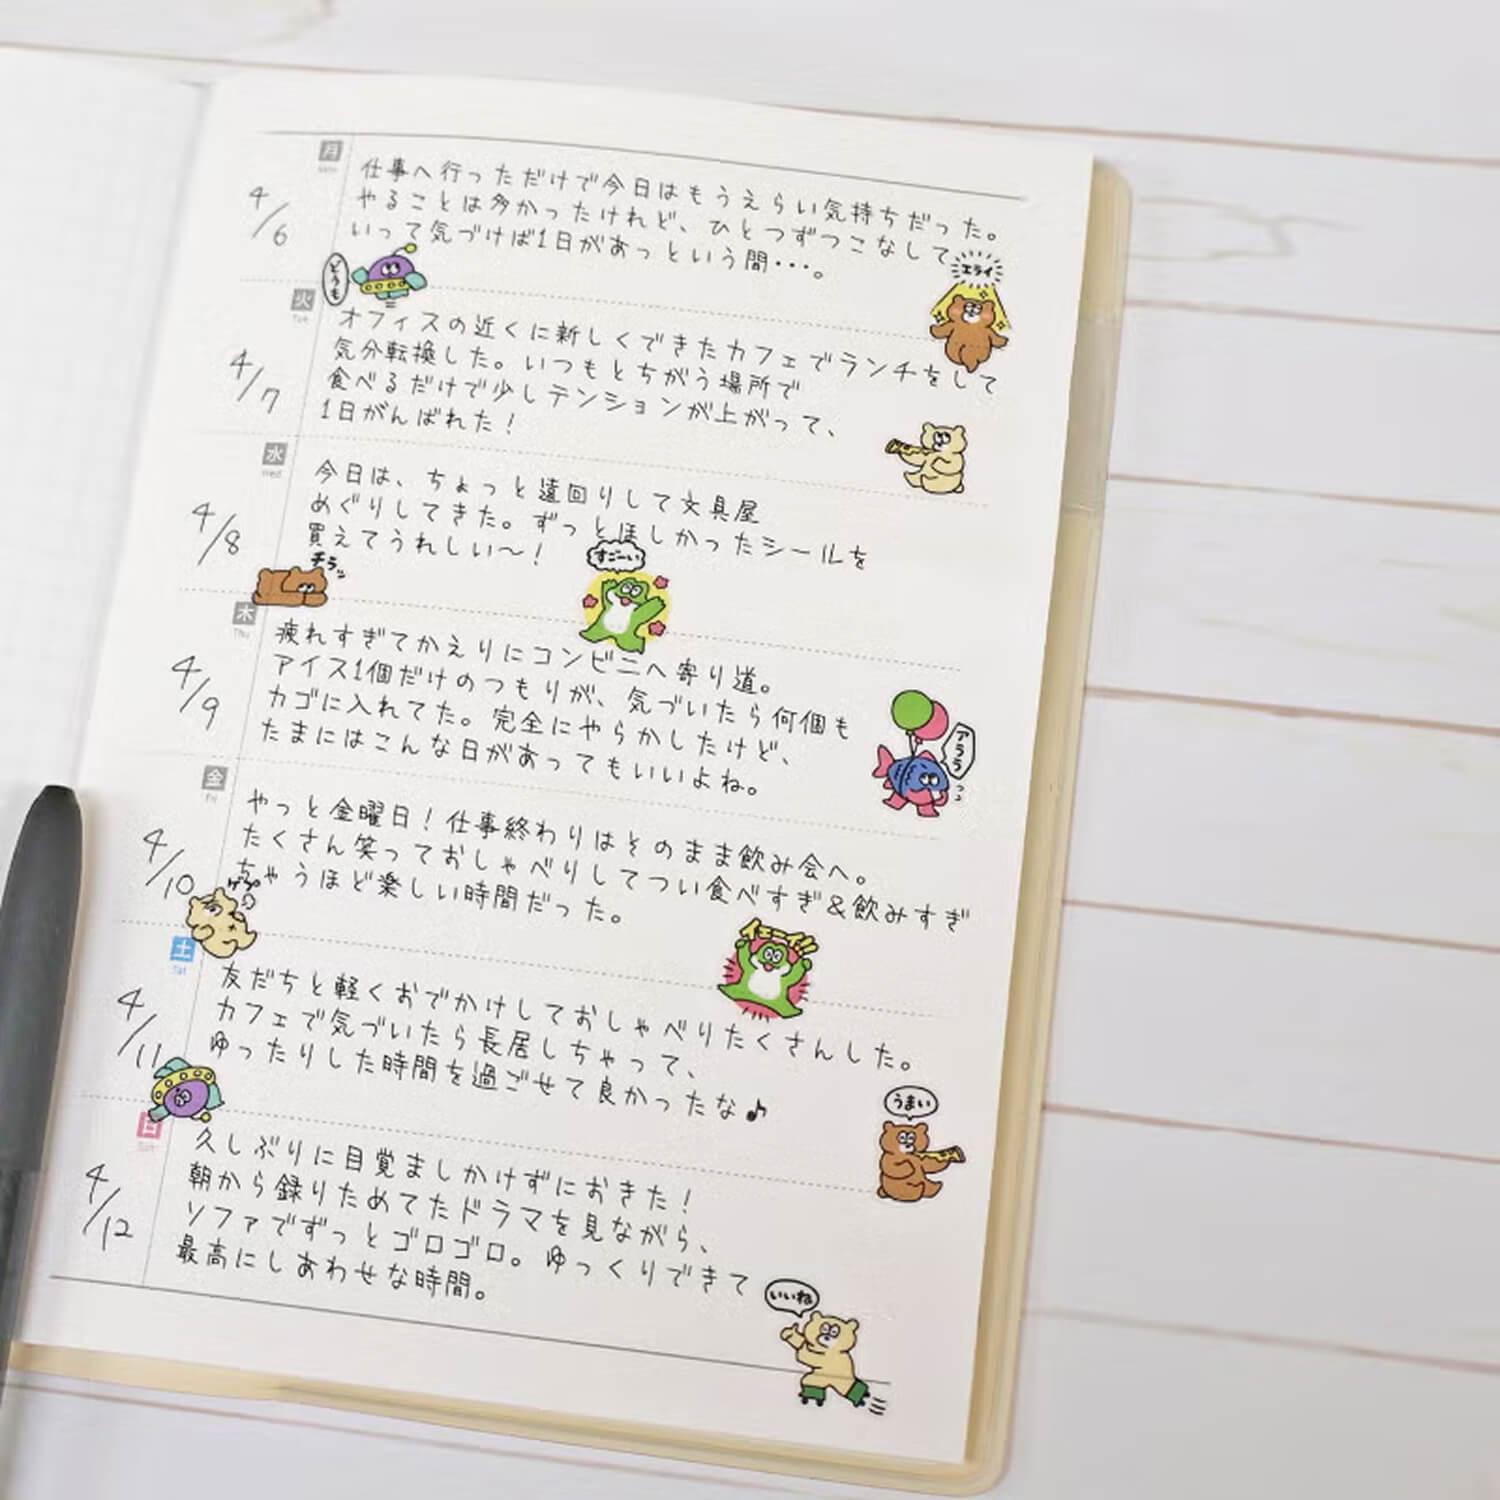 月
Mon
4/6
仕事へ行っただけで今日はもうえらい気持ちだった。
やることは多かったけれど、ひとつずつこなして
いって気づけば1日があっという間・・・。
エライ
どうも
火
Tue
4/7
オフィスの近くに新しくできたカフェでランチをして
気分転換した。いつもとちがう場所で
食べるだけで少しテンションが上がって、
1日がんばれた!
水
Wed
4/8
今日は、ちょっと遠回りして文具屋
めぐりしてきた。ずっとほしかったシールを
買えてうれしい〜!
すごーい
チラッ
木
Thu
4/9
疲れすぎてかえりにコンビニへ寄り道。
アイス1個だけのつもりが、気づいたら何個も
カゴに入れてた。完全にやらかしたけど、
たまにはこんな日があってもいいよね。
アララ
金
Fri
4/10
やっと金曜日!仕事終わりはそのまま飲み会へ。
たくさん笑っておしゃべりしてつい食べすぎ&飲みすぎ
ちゃうほど楽しい時間だった。
イェーイ!!
土
Sat
4/11
友だちと軽くおでかけしておしゃべりたくさんした。
カフェで気づいたら長居しちゃって、
ゆったりした時間を過ごせて良かったな♪
うまい
日
Sun
4/12
久しぶりに目覚ましかけずにおきた!
朝から録りためてたドラマを見ながら、
ソファでずっとゴロゴロ。ゆっくりできて
最高にしあわせな時間。
いいね